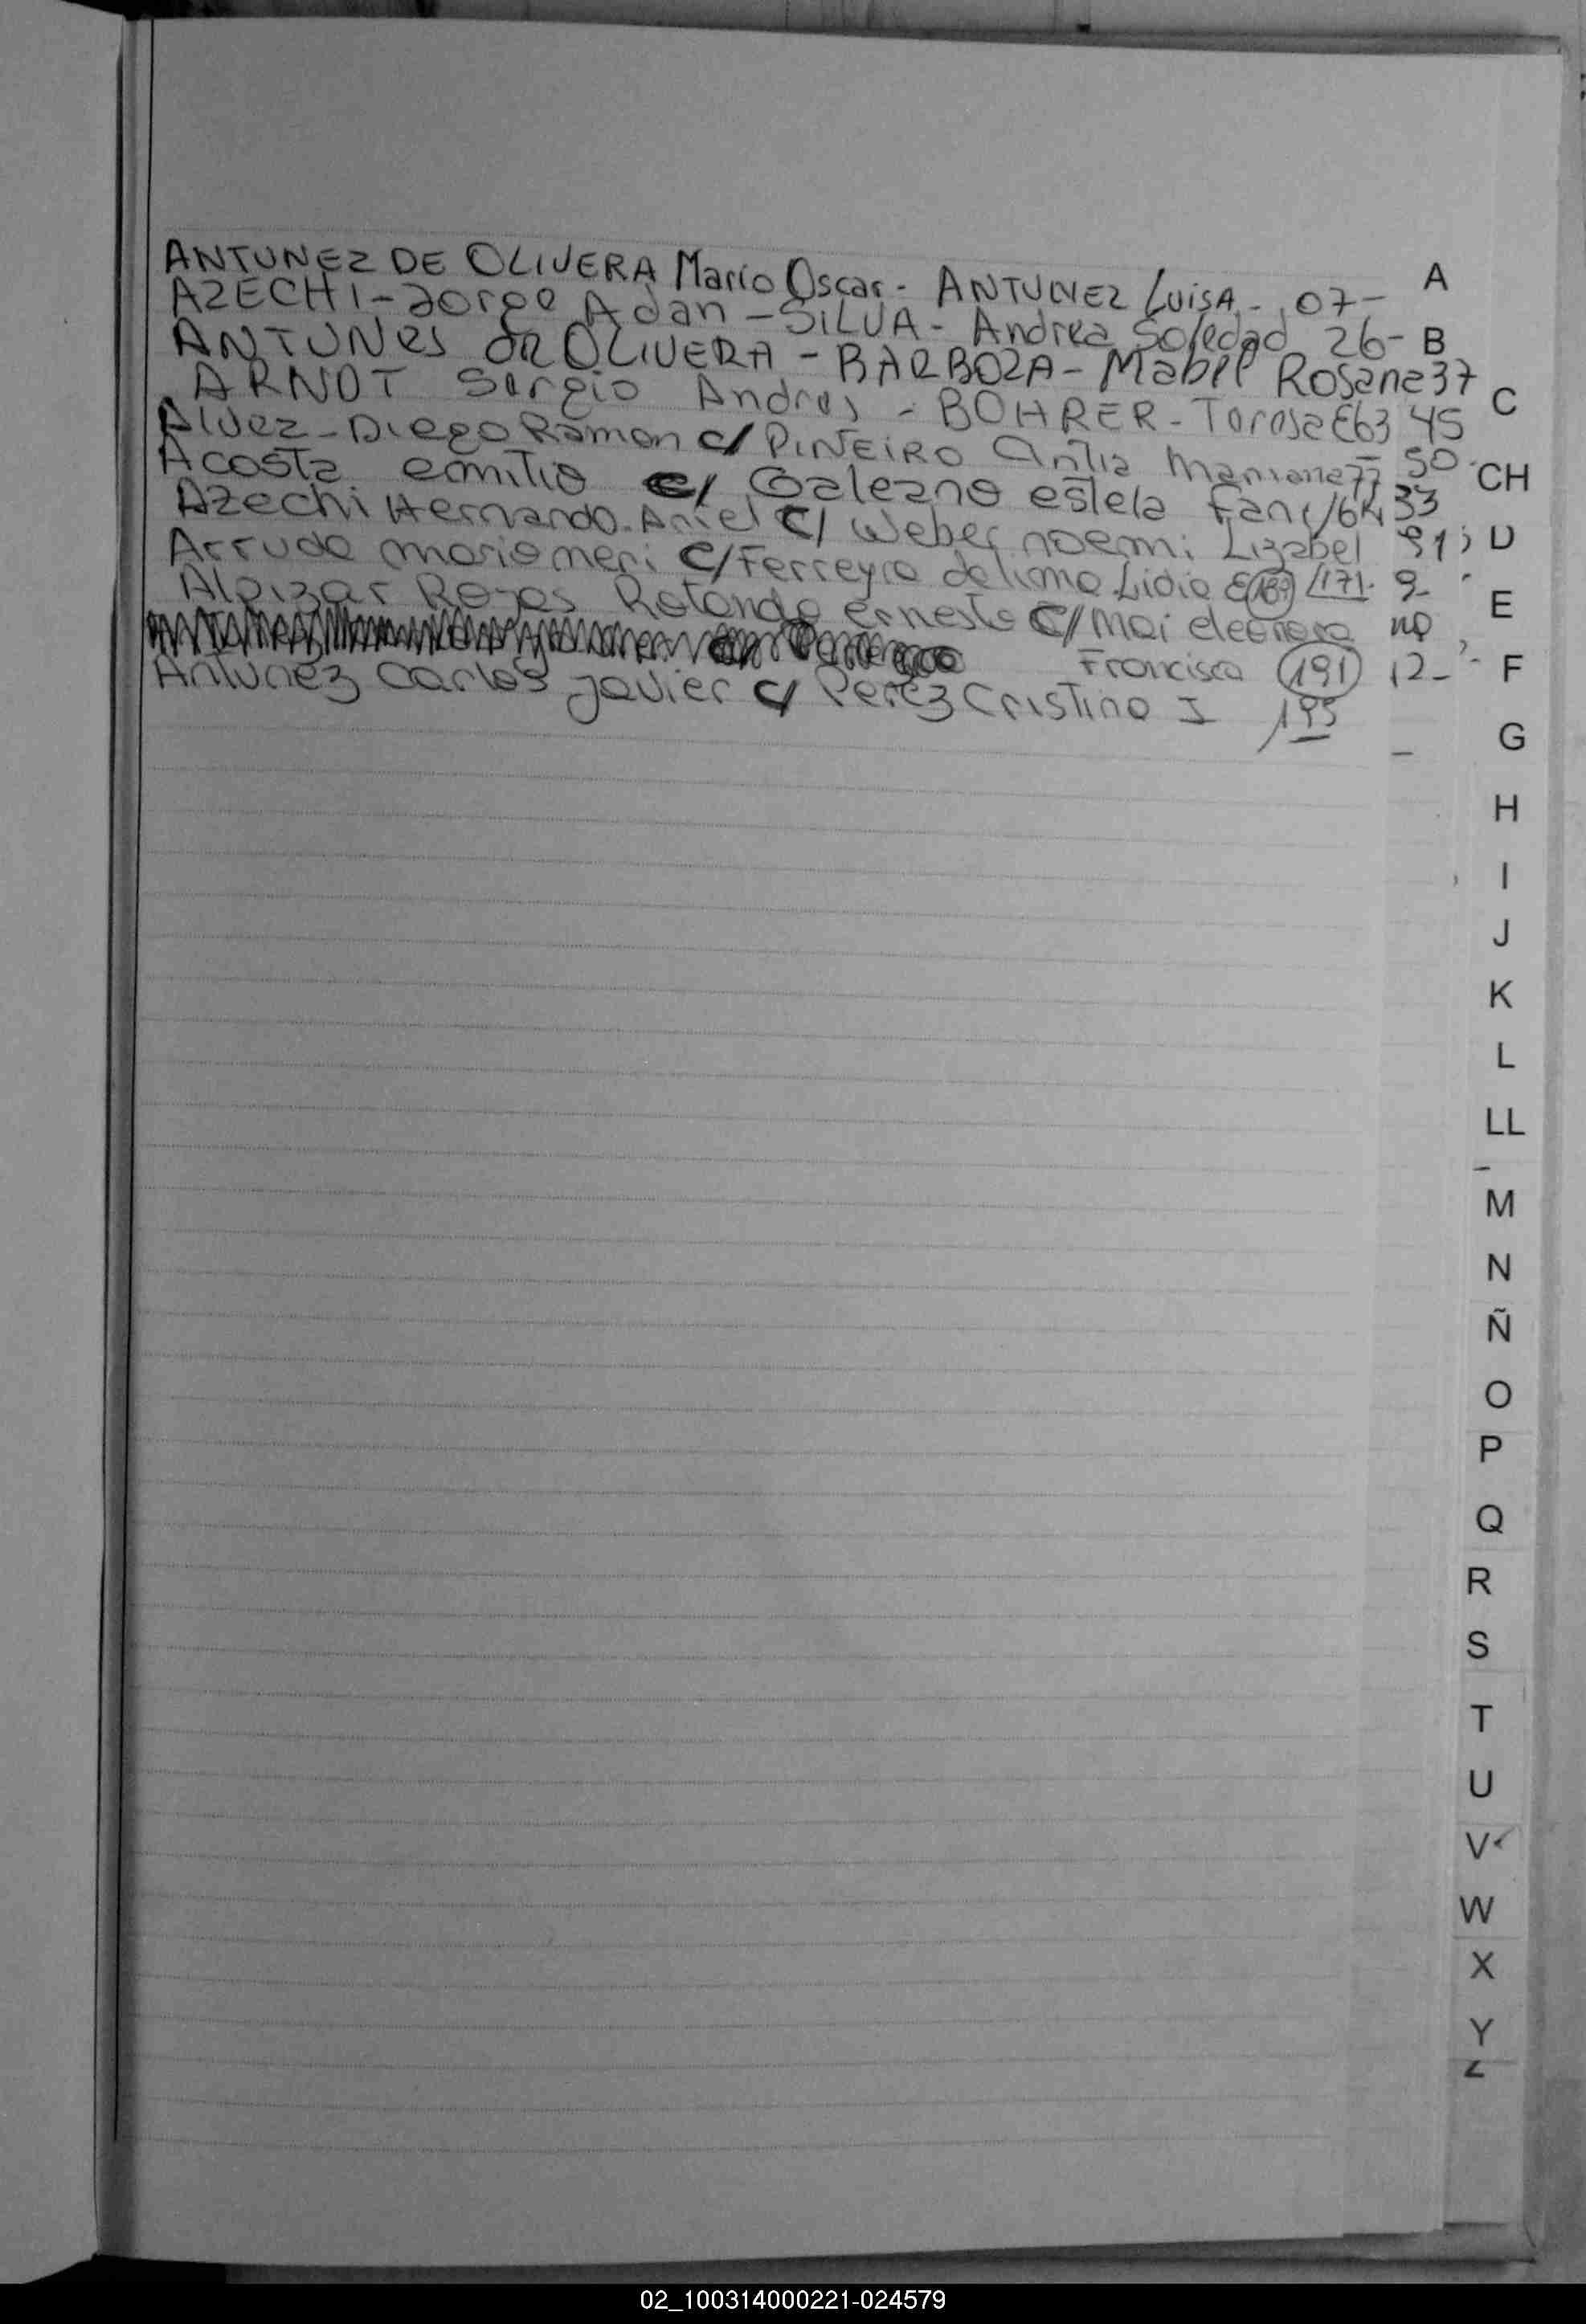 ANTUNEZ DE OLIVERA Mario Oscar - ANTUNEZ LUISA - 07-
AZECHI - Jorge Adan - SILVA - Andrea Soledad 26-
ANTUNES de OLIVERA - BARBOZA - Mabel Rosana 37
ARNDT Sergio Andres - BOHRER - Teresa E 63 45
Alvez - Diego Ramon c/ PINTEIRO 77 50
Acosta emilio c/ Galeano estela Fany 33
Azechi Hernando Ariel c/ Weber noemi Lizabel 91
Arruda mario meri c/ Ferreyra de lima Lidia E 171 9-
Alpizar Rojas Rotondo ernesto c/ mai eleonora
Francisca 191 12-
Antunez Carlos Javier c/ Perez Cristina I 195
A
B
C
CH
D
E
F
G
H
I
J
K
L
LL
M
N
Ñ
O
P
Q
R
S
T
U
V
W
X
Y
Z
02_100314000221-024579